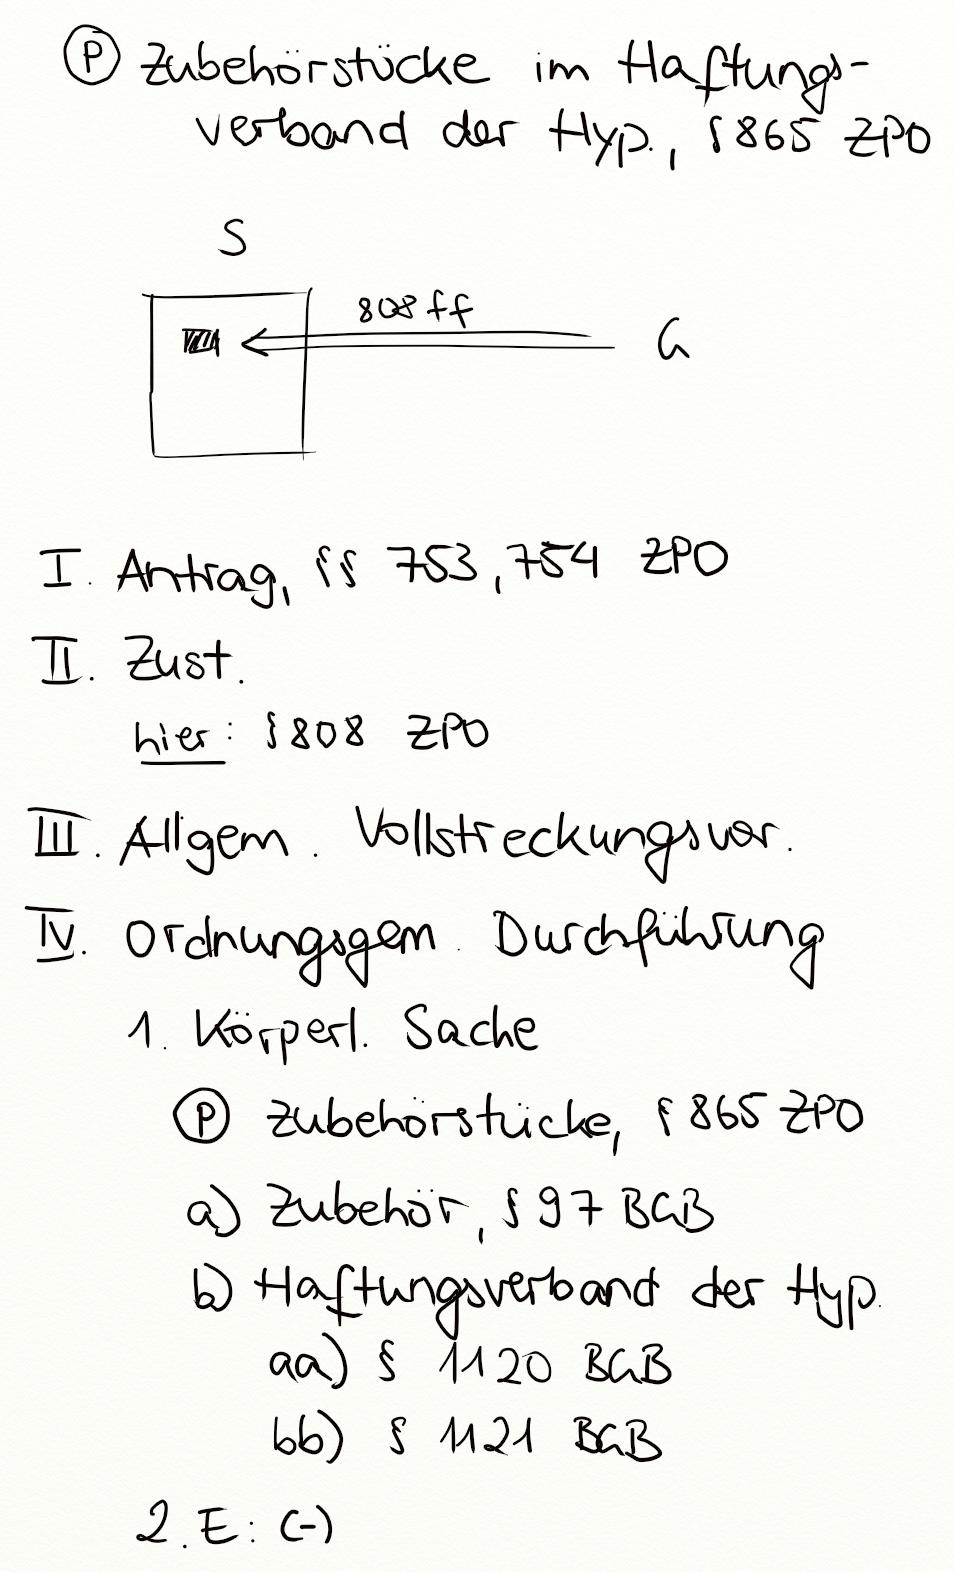 Ⓟ Zubehörstücke im Haftungs-
verband der Hyp., § 865 ZPO
S
808 ff
G
I. Antrag, §§ 753, 754 ZPO
II. Zust.
hier: § 808 ZPO
III. Allgem. Vollstreckungsvor.
IV. Ordnungsgem. Durchführung
1. Körperl. Sache
Ⓟ Zubehörstücke, § 865 ZPO
a) Zubehör, § 97 BGB
b) Haftungsverband der Hyp.
aa) § 1120 BGB
bb) § 1121 BGB
2. E: (-)